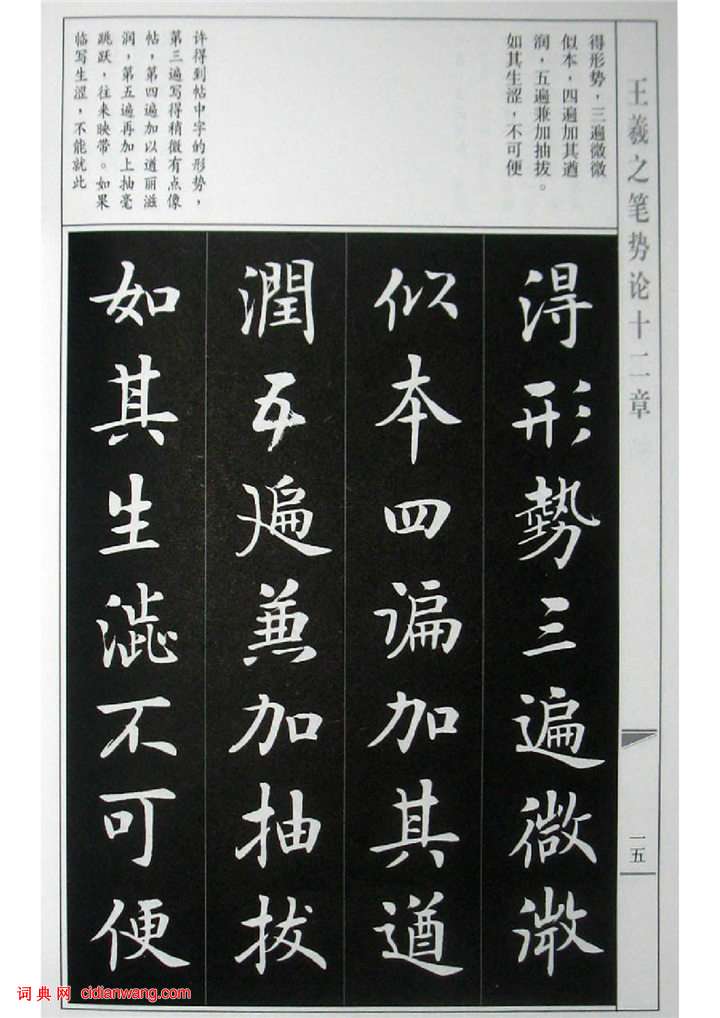 王羲之笔势论十二章
一五
得形势，三遍微微
似本，四遍加其遒
润，五遍兼加抽拔。
如其生涩，不可便
许得到帖中字的形势，
第三遍写得稍微有点像
帖，第四遍加以遒丽滋
润，第五遍再加上抽毫
跳跃，往来映带。如果
临写生涩，不能就此
得形勢三遍微微
似本四遍加其遒
潤五遍兼加抽拔
如其生澁不可便
词典网 cidianwang.com